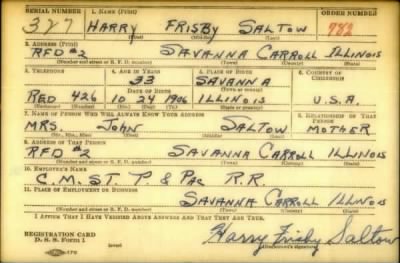 SERIAL NUMBER 1. NAME (Print) ORDER NUMBER
327 HARRY FRISBY SALTOW 782
(First) (Middle) (Last)
2. ADDRESS (Print)
RFD #2 SAVANNA CARROLL ILLINOIS
(Number and street or R. F. D. number) (Town) (County) (State)
3. TELEPHONE 4. AGE IN YEARS 5. PLACE OF BIRTH 6. COUNTRY OF CITIZENSHIP
33 SAVANNA
DATE OF BIRTH (Town or county)
RED 426 10 24 1906 ILLINOIS U.S.A.
(Exchange) (Number) (Mo.) (Day) (Yr.) (State or country)
7. NAME OF PERSON WHO WILL ALWAYS KNOW YOUR ADDRESS 8. RELATIONSHIP OF THAT PERSON
MRS. JOHN SALTOW MOTHER
(Mr., Mrs., Miss) (First) (Middle) (Last)
9. ADDRESS OF THAT PERSON
RFD #2 SAVANNA CARROLL ILLINOIS
(Number and street or R. F. D. number) (Town) (County) (State)
10. EMPLOYER'S NAME
C.M. ST. P. & PAC R.R.
11. PLACE OF EMPLOYMENT OR BUSINESS
SAVANNA CARROLL ILLINOIS
(Number and street or R. F. D. number) (Town) (County) (State)
I AFFIRM THAT I HAVE VERIFIED ABOVE ANSWERS AND THAT THEY ARE TRUE.
REGISTRATION CARD
D. S. S. Form 1 (over) Harry Frisby Saltow
(Registrant's signature)